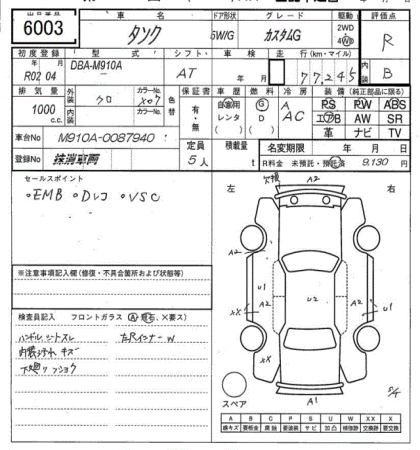 6003
車名
タンク
ドア形状
5W/G
グレード
カスタムG
駆動
2WD
4WD
評価点
R
初度登録
R 年 月
R02 04
型式
DBA-M910A
シフト
AT
車検
年 月
走行(km・マイル)
77,245
内装
B
排気量
1000
c.c.
外装色
クロ
カラーNo.
X07
色替
内装色
カラーNo.
保証書
有・無
車歴
自家用
レンタ
( )
燃料
G
D
( )
冷房
A
AC
装備(純正部品に限る)
PS PW ABS
エアB AW SR
革 ナビ TV
車台No
M910A-0087940
登録No
抹消車両
定員
5人
積載量
t
名変期限
年 月 日
R料金 未預託・預託済 9,130 円
セールスポイント
・EMB ・Dレコ ・VSC
※注意事項記入欄(修復・不具合箇所および状態等)
検査員記入 フロントガラス(A、飛石、X要ス)
ハンドル、シートスレ
内装ヨゴレ キズ
左Rインナー W
左 右
A2
A2
U1
A2
U2
A2
U1
XX
XX
XX
A1
スペア
A B C P S U W X XX
線キズ 要板金 腐蝕 要塗装 サビ 凹凸 補修跡 要交換 交換跡